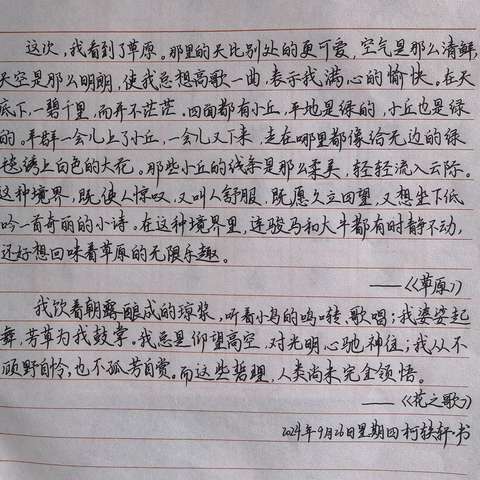 这次,我看到了草原。那里的天比别处的更可爱,空气是那么清鲜,
天空是那么明朗,使我总想高歌一曲,表示我满心的愉快。在天
底下,一碧千里,而并不茫茫。四面都有小丘,平地是绿的,小丘也是绿
的。羊群一会儿上了小丘,一会儿又下来,走在哪里都像给无边的绿
毯绣上白色的大花。那些小丘的线条是那么柔美,轻轻流入云际。
这种境界,既使人惊叹,又叫人舒服,既愿久立四望,又想坐下低
吟一首奇丽的小诗。在这种境界里,连骏马和大牛都有时静立不动,
还好想回味着草原的无限乐趣。
——《草原》
我饮着朝露酿成的琼浆,听着小鸟的鸣啭、歌唱;我婆娑起
舞,芳草为我鼓掌。我总是仰望高空,对光明心驰神往;我从不
顾影自怜,也不孤芳自赏。而这些哲理,人类尚未完全领悟。
——《花之歌》
2024年9月26日星期四柯轶轩·书